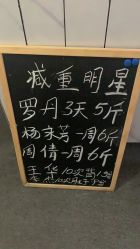 减重明星
罗丹3天5斤
杨永芳一周6斤
周倩一周6斤
王华10次
10次